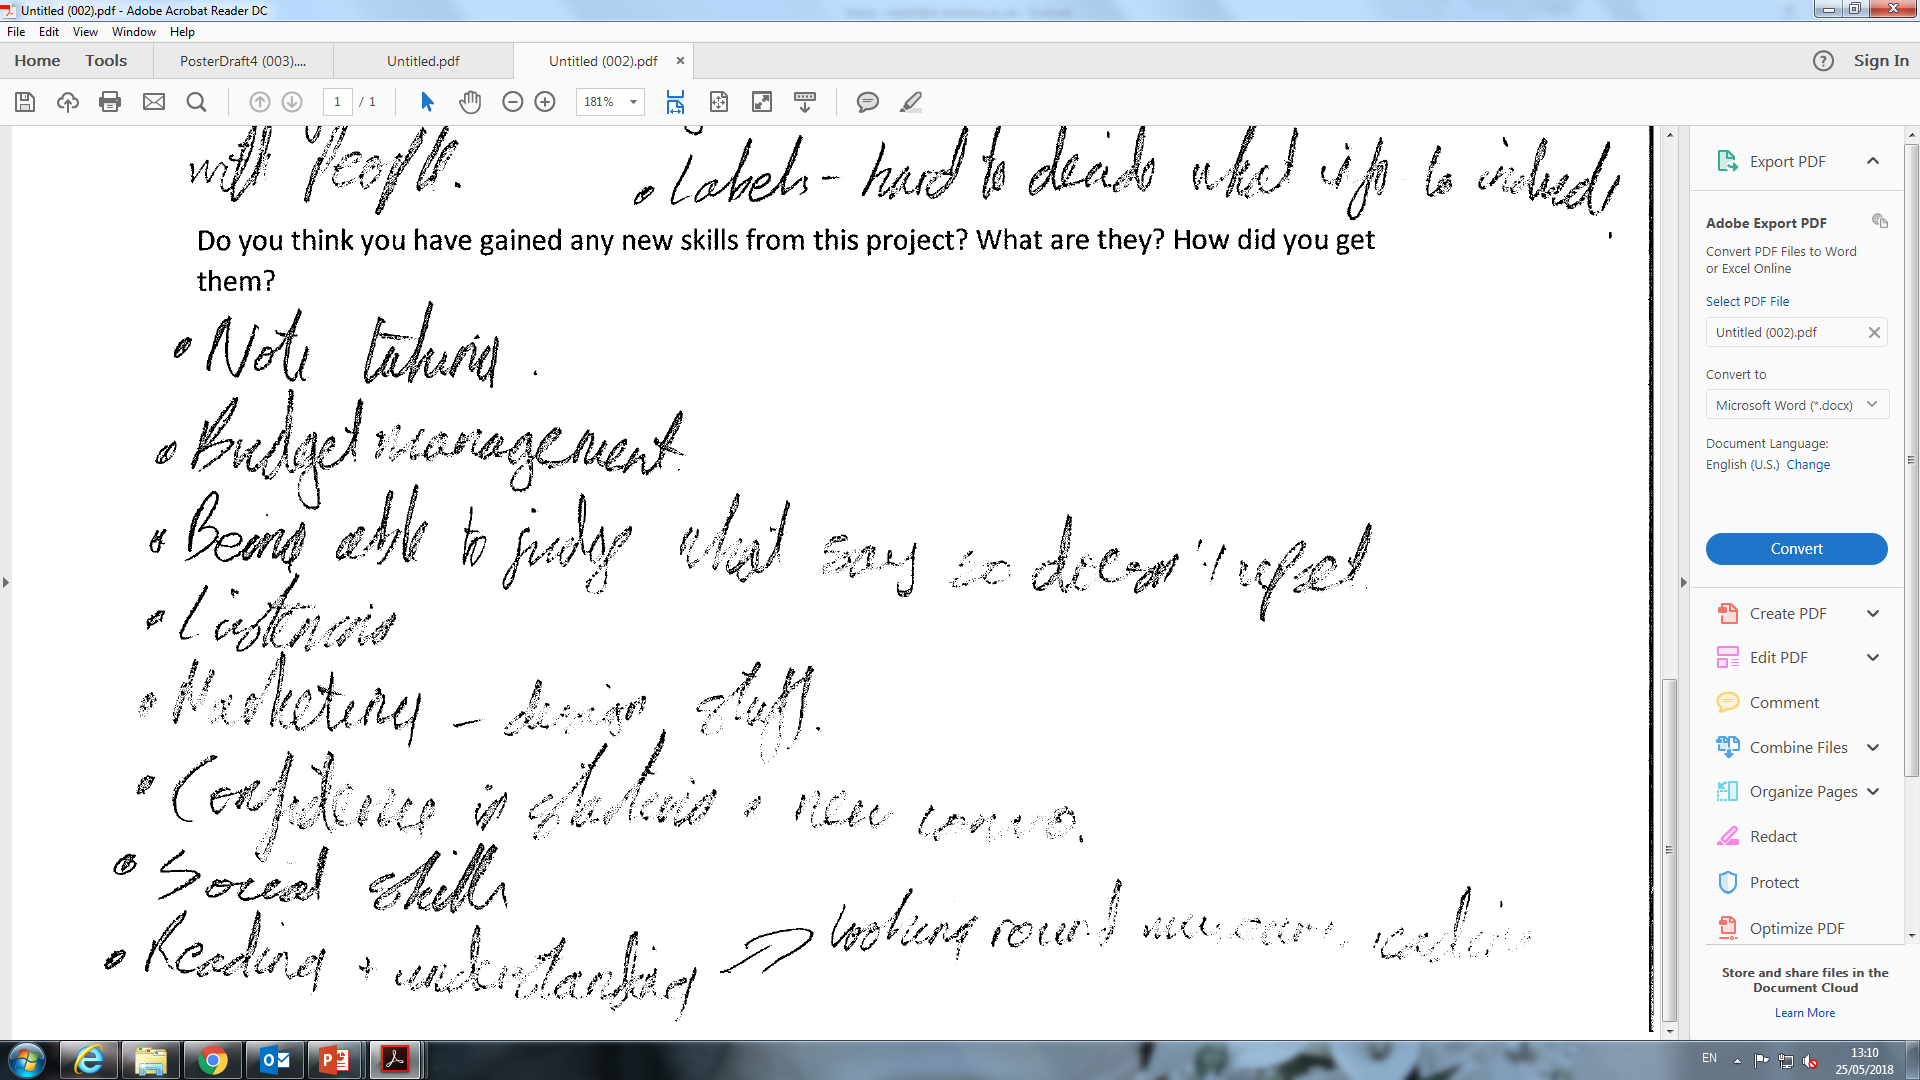 Untitled (002).pdf - Adobe Acrobat Reader DC
File Edit View Window Help
Home Tools PosterDraft4 (003).... Untitled.pdf Untitled (002).pdf × Sign In
1 / 1 181%
with People.
• Labels - hard to decide what info to include
Do you think you have gained any new skills from this project? What are they? How did you get
them?
• Note taking.
• Budget management.
• Being able to judge what say so doesn't upset.
• Listening
• Marketing - design stuff.
• Confidence in new convo.
• Social skills
• Reading + understanding => looking round museum, reading
Export PDF
Adobe Export PDF
Convert PDF Files to Word
or Excel Online
Select PDF File
Untitled (002).pdf ×
Convert to
Microsoft Word (*.docx)
Document Language:
English (U.S.) Change
Convert
Create PDF
Edit PDF
Comment
Combine Files
Organize Pages
Redact
Protect
Optimize PDF
Store and share files in the
Document Cloud
Learn More
EN
13:10
25/05/2018